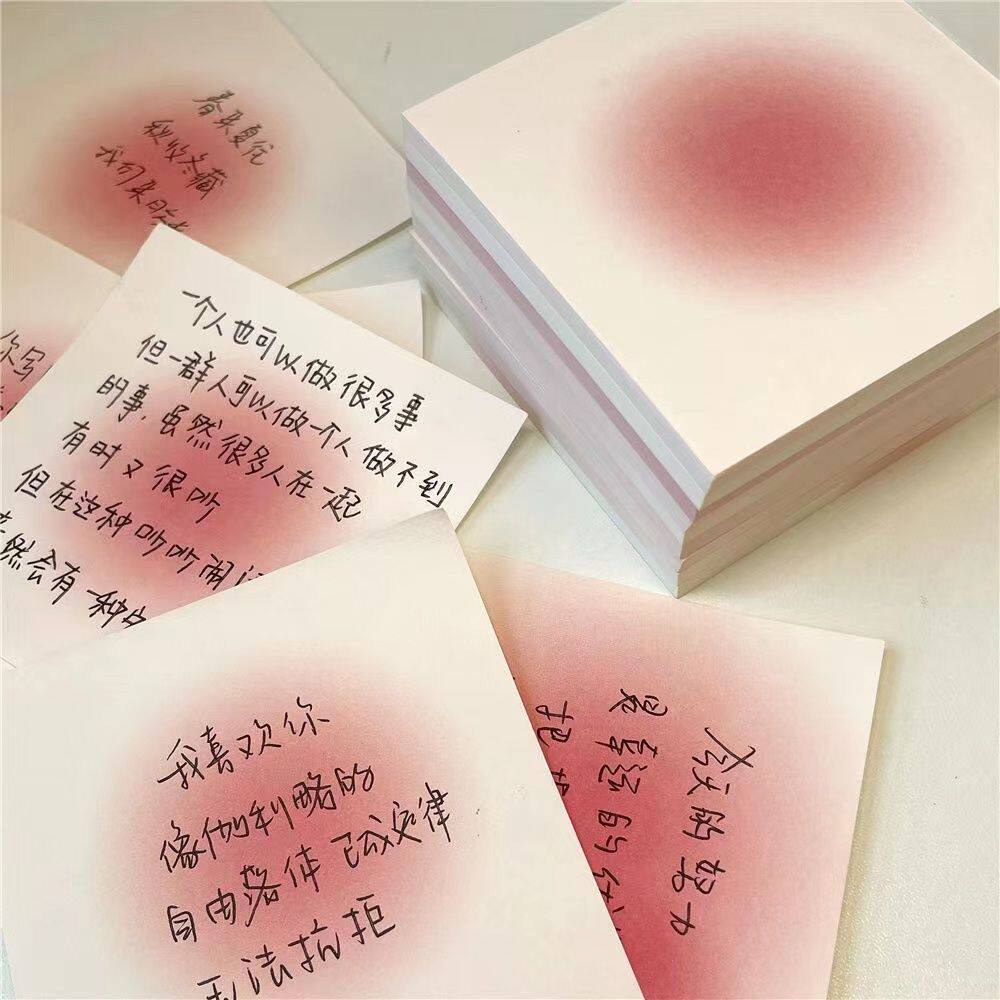 春来夏往
秋收冬藏
我们来日
你写
一个人也可以做很多事
但一群人可以做一个人做不到
的事，虽然很多人在一起
有时又很吵
但在这种吵吵闹
然会有一种
我喜欢你
像伽利略的
自由落体 已成定律
无法抗拒
的努力
是幸运的
把